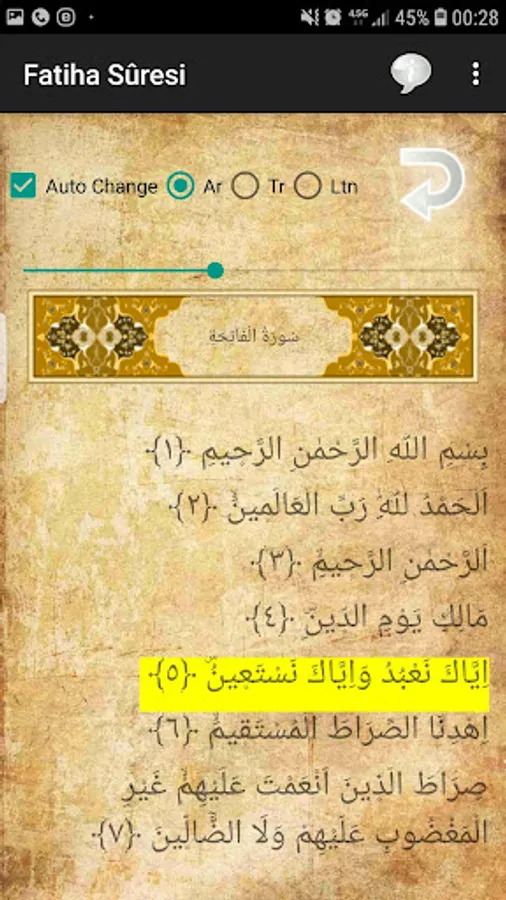 45% 00:28
Fatiha Sûresi
Auto Change Ar Tr Ltn
سُورَةُ الْفَاتِحَةِ
بِسْمِ اللّٰهِ الرَّحْمٰنِ الرَّحِيمِ ﴿١﴾
اَلْحَمْدُ لِلّٰهِ رَبِّ الْعَالَمِينَۙ ﴿٢﴾
اَلرَّحْمٰنِ الرَّحِيمِۙ ﴿٣﴾
مَالِكِ يَوْمِ الدّ۪ينِۜ ﴿٤﴾
اِيَّاكَ نَعْبُدُ وَاِيَّاكَ نَسْتَع۪ينُۜ ﴿٥﴾
اِهْدِنَا الصِّرَاطَ الْمُسْتَق۪يمَۙ ﴿٦﴾
صِرَاطَ الَّذ۪ينَ اَنْعَمْتَ عَلَيْهِمْۙ غَيْرِ
الْمَغْضُوبِ عَلَيْهِمْ وَلَا الضَّٓالّ۪ينَ ﴿٧﴾